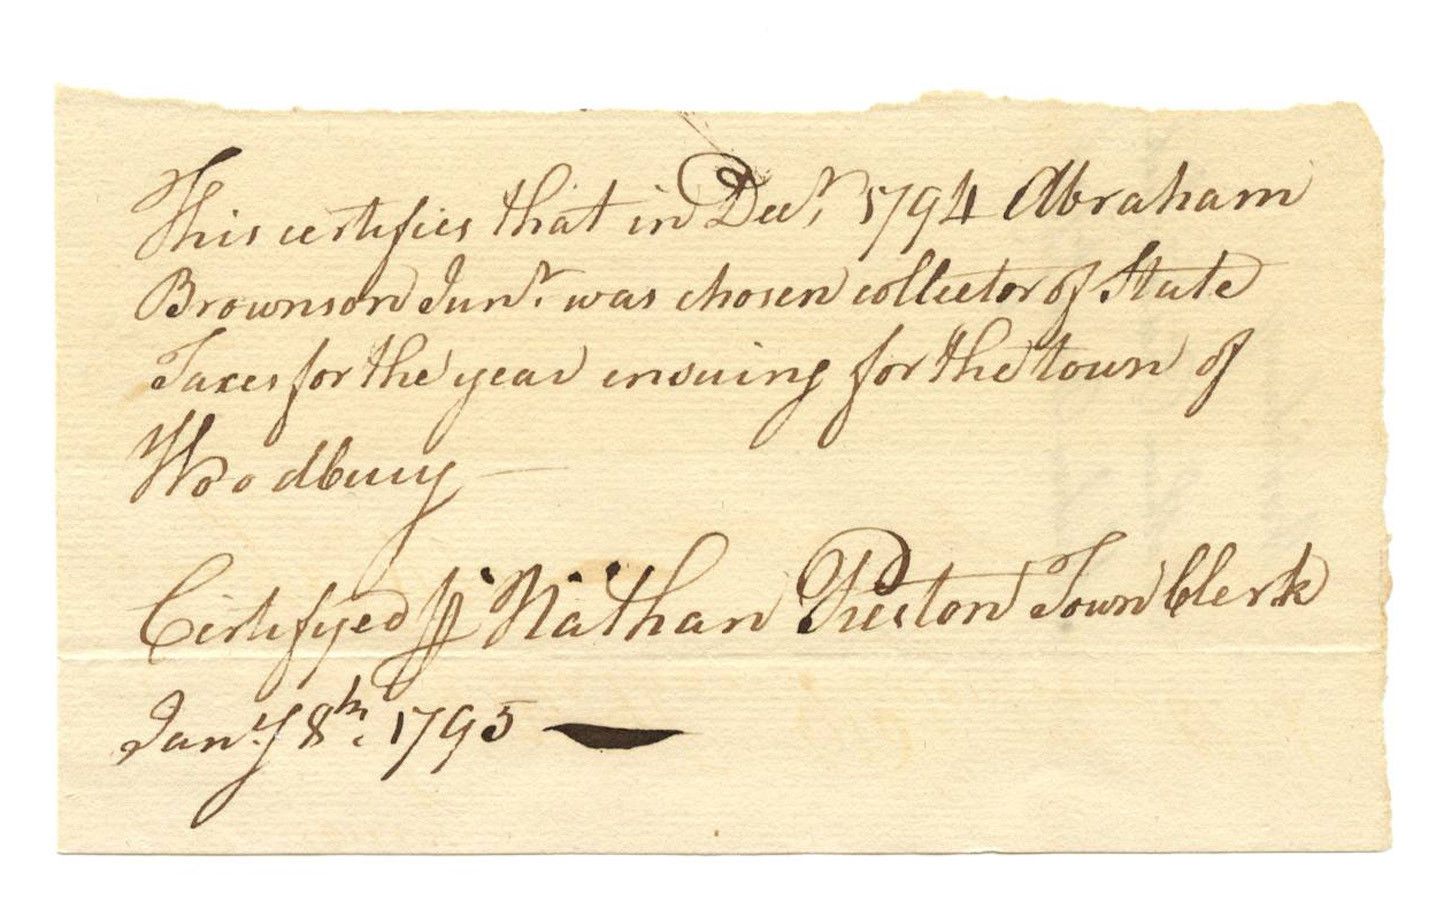 This certifies that in Decr. 1794 Abraham
Brownson Junr. was chosen collector of State
Taxes for the year ensuing for the town of
Woodbury —
Certifyed ⅌ Nathan Preston Town Clerk
Jany 8th. 1795 —